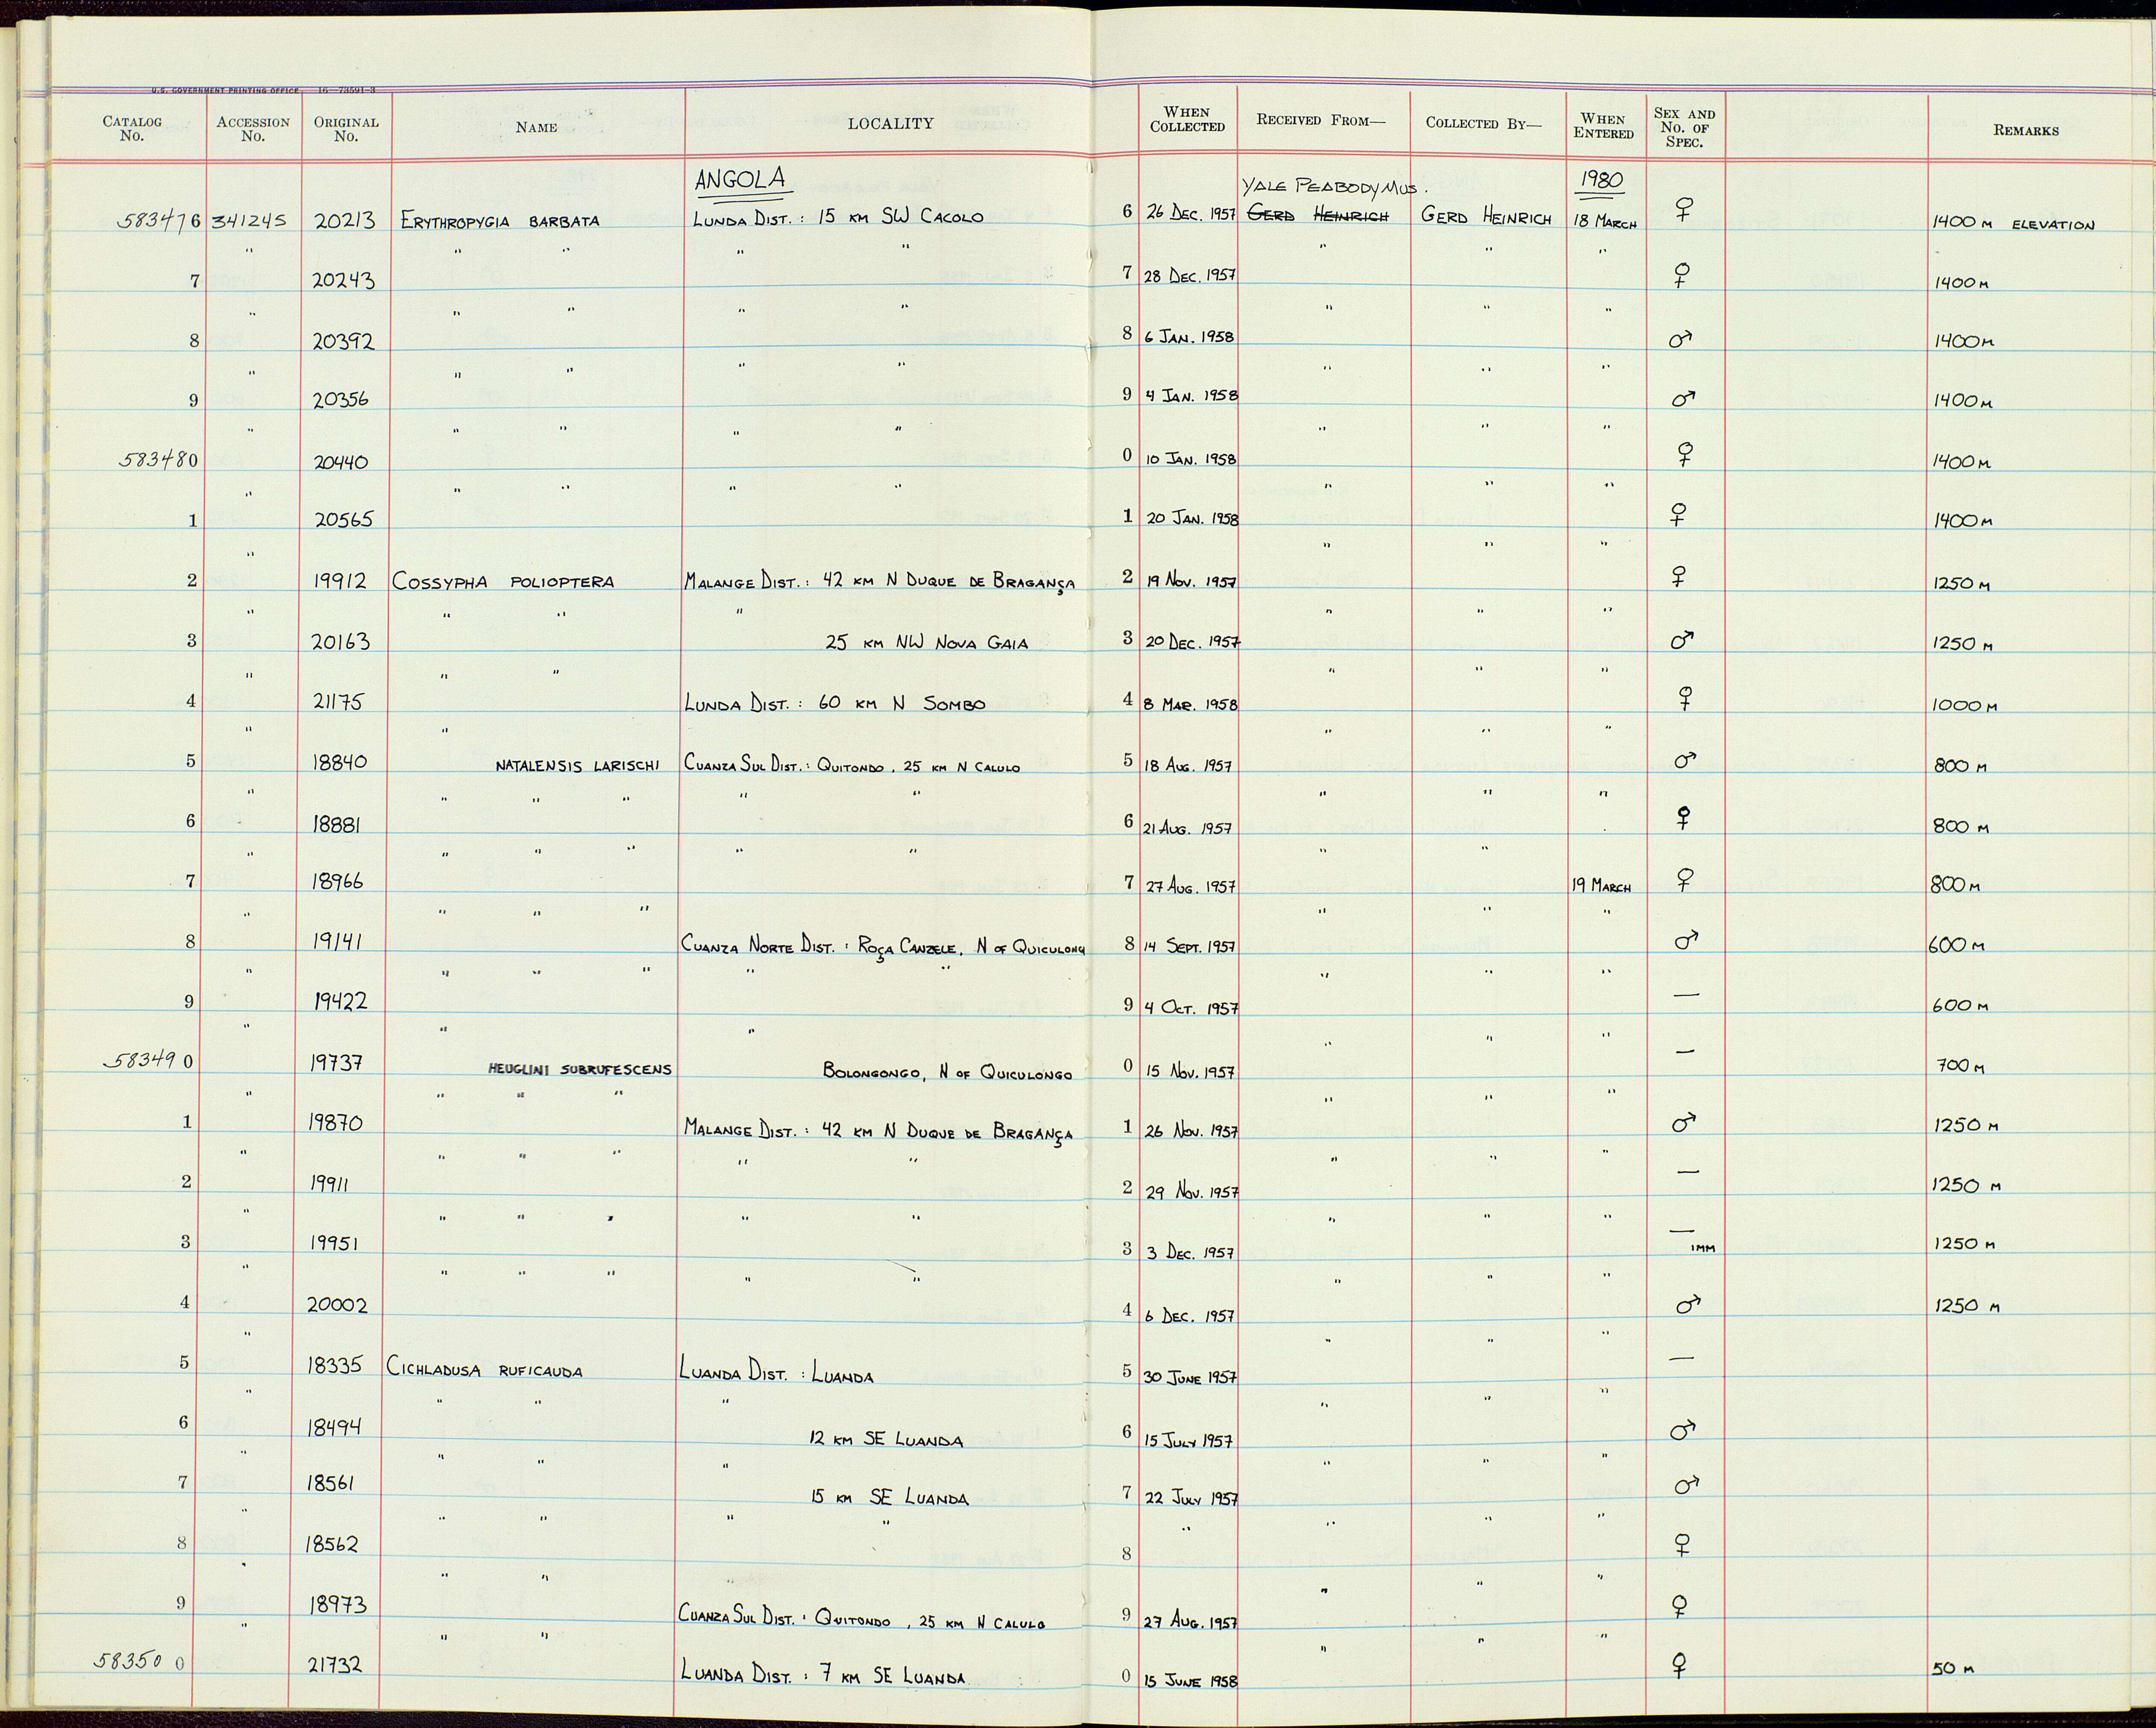 U.S. GOVERNMENT PRINTING OFFICE 16—73591-3
CATALOG No. ACCESSION No. ORIGINAL No. NAME LOCALITY WHEN COLLECTED RECEIVED FROM— COLLECTED BY— WHEN ENTERED SEX AND No. OF SPEC. REMARKS
ANGOLA YALE PEABODY MUS. 1980
583476 341245 20213 ERYTHROPYGIA BARBATA LUNDA DIST. : 15 KM SW CACOLO 6 26 DEC. 1957 GERD HEINRICH GERD HEINRICH 18 MARCH ♀ 1400 M ELEVATION
7 " 20243 " " " " 7 28 DEC. 1957 " " " ♀ 1400 M
8 " 20392 " " " " 8 6 JAN. 1958 " " " ♂ 1400 M
9 " 20356 " " " " 9 4 JAN. 1958 " " " ♂ 1400 M
583480 " 20440 " " " " 0 10 JAN. 1958 " " " ♀ 1400 M
1 " 20565 " " " " 1 20 JAN. 1958 " " " ♀ 1400 M
2 " 19912 COSSYPHA POLIOPTERA MALANGE DIST. : 42 KM N DUQUE DE BRAGANÇA 2 19 NOV. 1957 " " " ♀ 1250 M
3 " 20163 " " " 25 KM NW NOVA GAIA 3 20 DEC. 1957 " " " ♂ 1250 M
4 " 21175 " " LUNDA DIST. : 60 KM N SOMBO 4 8 MAR. 1958 " " " ♀ 1000 M
5 " 18840 " NATALENSIS LARISCHI CUANZA SUL DIST. : QUITONDO, 25 KM N CALULO 5 18 AUG. 1957 " " " ♂ 800 M
6 " 18881 " " " " " 6 21 AUG. 1957 " " " ♀ 800 M
7 " 18966 " " " " " 7 27 AUG. 1957 " " 19 MARCH ♀ 800 M
8 " 19141 " " " CUANZA NORTE DIST. : ROÇA CANZELE, N OF QUICULONG 8 14 SEPT. 1957 " " " ♂ 600 M
9 " 19422 " " " " " 9 4 OCT. 1957 " " " — 600 M
583490 " 19737 " HEUGLINI SUBRUFESCENS " BOLONGONGO, N OF QUICULONGO 0 15 NOV. 1957 " " " — 700 M
1 " 19870 " " " MALANGE DIST. : 42 KM N DUQUE DE BRAGANÇA 1 26 NOV. 1957 " " " ♂ 1250 M
2 " 19911 " " " " " 2 29 NOV. 1957 " " " — 1250 M
3 " 19951 " " " " " 3 3 DEC. 1957 " " " — IMM 1250 M
4 " 20002 " " " " " 4 6 DEC. 1957 " " " ♂ 1250 M
5 " 18335 CICHLADUSA RUFICAUDA LUANDA DIST. : LUANDA 5 30 JUNE 1957 " " " —
6 " 18494 " " " 12 KM SE LUANDA 6 15 JULY 1957 " " " ♂
7 " 18561 " " " 15 KM SE LUANDA 7 22 JULY 1957 " " " ♂
8 " 18562 " " " " 8 " " " " ♀
9 " 18973 " " CUANZA SUL DIST. : QUITONDO, 25 KM N CALULO 9 27 AUG. 1957 " " " ♀
583500 " 21732 " " LUANDA DIST. : 7 KM SE LUANDA 0 15 JUNE 1958 " " " ♀ 50 M